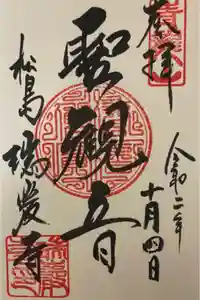 奉拝
令和二年
十月四日
聖観音
松島 瑞巌寺